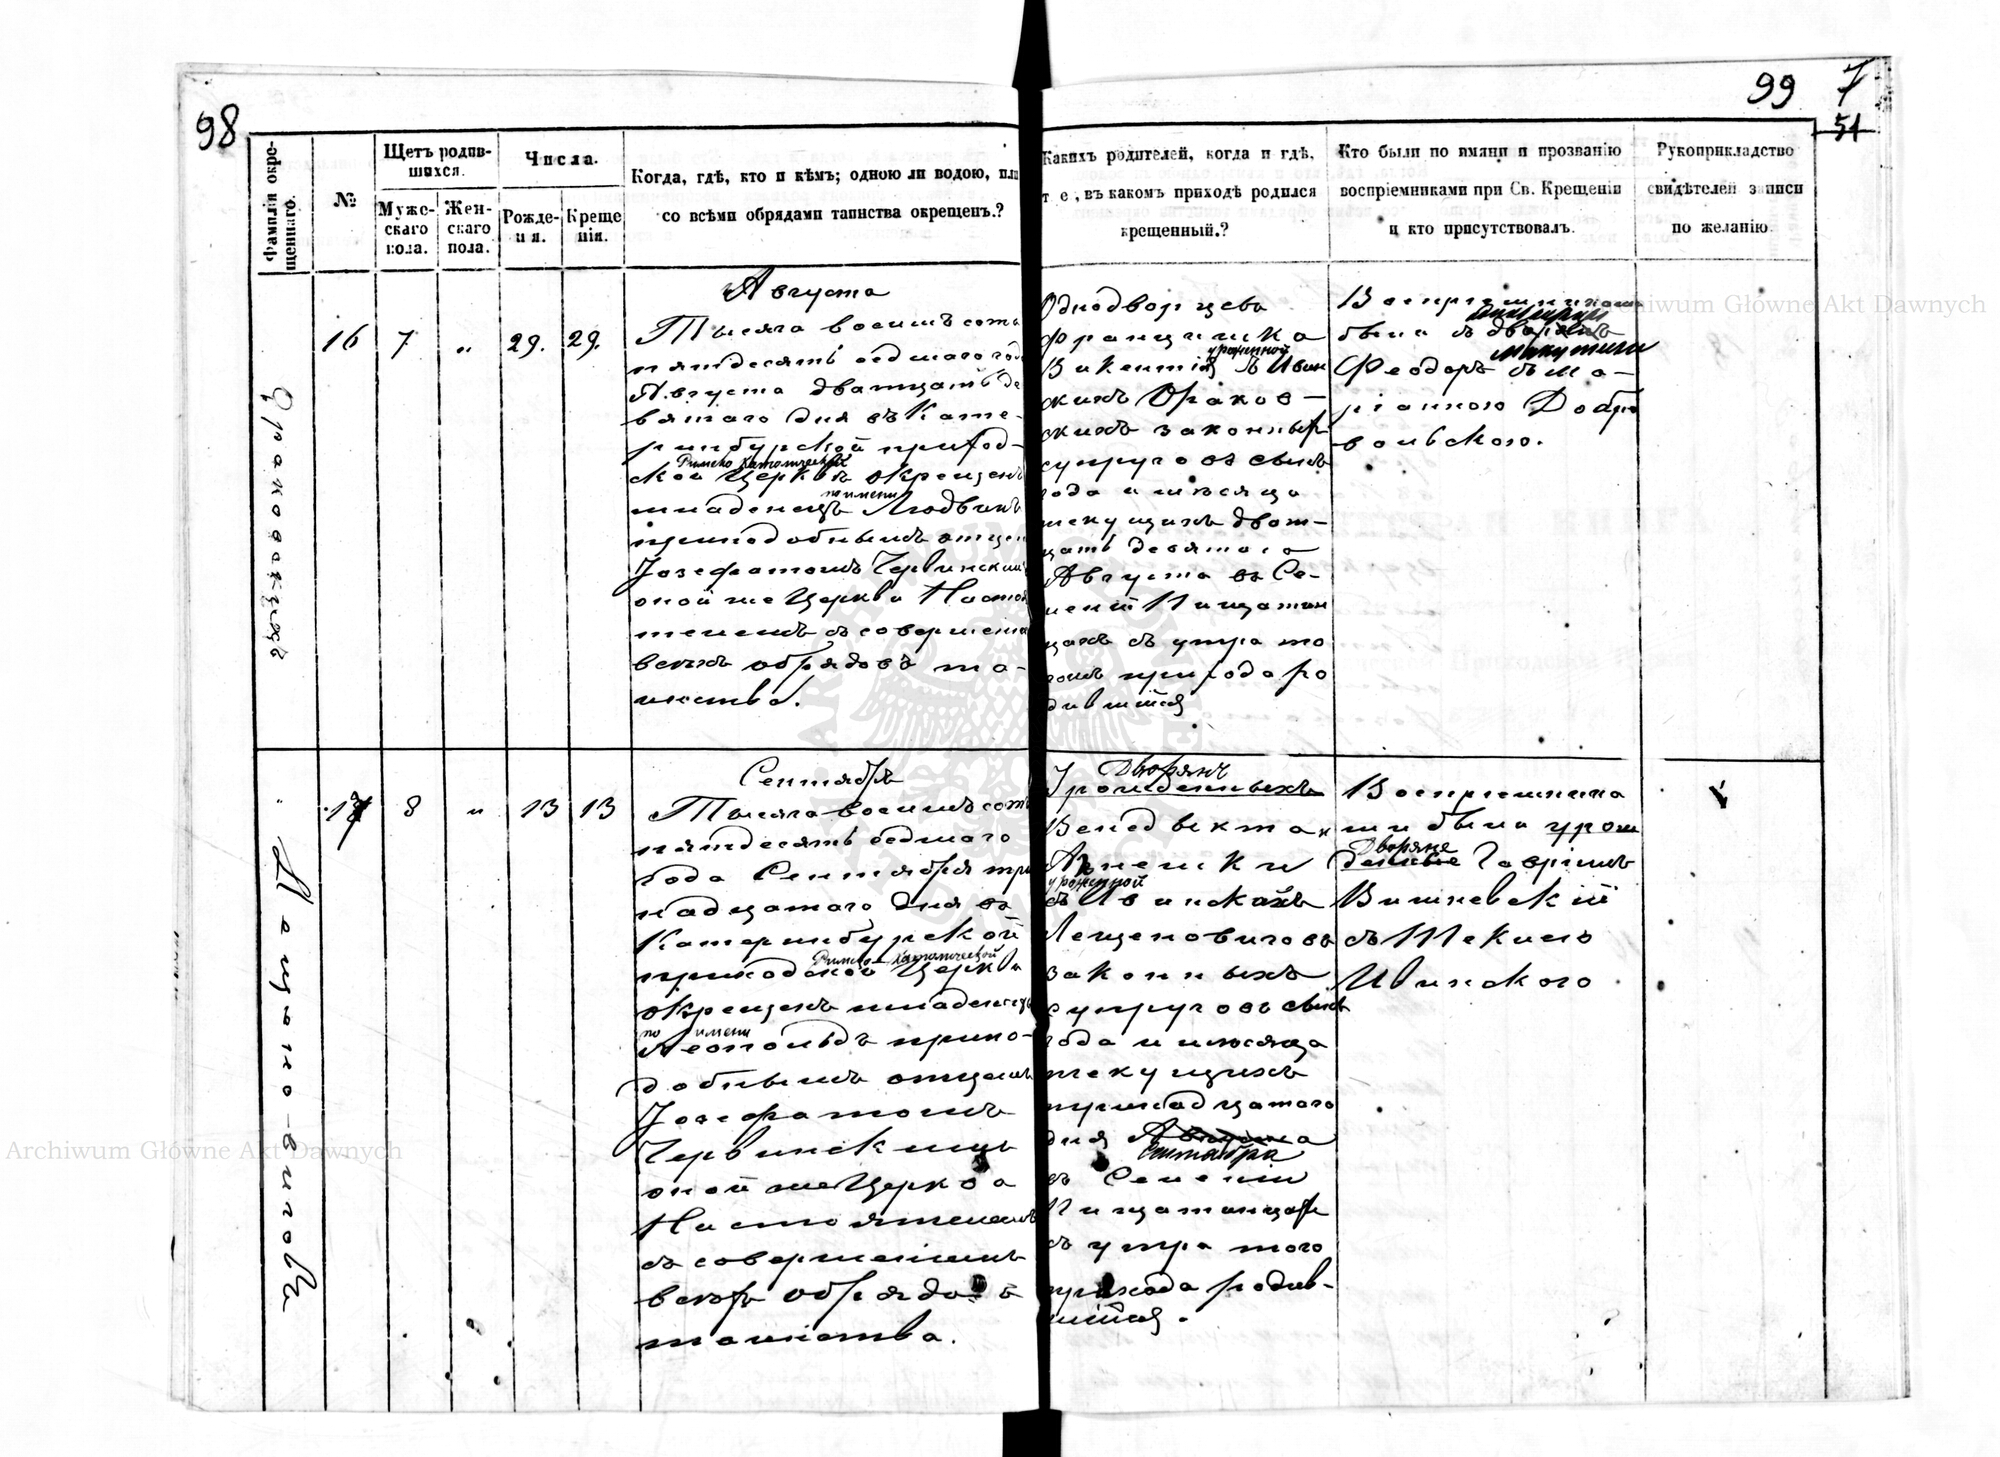 98
99 7
51
Фамилія окре-
щеннаго.
№
Щетъ родив-
шихся.
Мужс-
скаго
пола.
Жен-
скаго
пола.
Числа.
Рожде-
нія.
Креще
нія.
Когда, гдѣ, кто и кѣмъ; одною ли водою, или
со всѣми обрядами таинства окрещенъ.?
Какихъ родителей, когда и гдѣ,
т е , въ какомъ приходѣ родился
крещенный.?
Кто были по имяни и прозванію
воспріемниками при Св. Крещеніи
и кто присутствовалъ.
Рукоприкладство
свидѣтелей записи
по желанію.
16 7 „ 29. 29.
Августа
Тысяча восемъ сотъ
пятдесять седмаго года
Августа дватцать де
вятаго дня въ Кате-
ринбурской приход-
Римско Католической
ской Церквѣ окрещенъ
по имени
младенецъ Людвикъ
преподобнымъ отцем
Іозефатомъ Червинскимъ
оной же Церкви Настоя
телемъ съ совершеніемъ
всѣхъ обрядовъ та-
инства.
Однодворцевъ
Францишка
урожденной
Викентія съ Ивин
скихъ Драков-
скихъ законныхъ
супруговъ сынъ
года и мѣсяца
текущихъ дват-
цать девятаго
Августа въ Се-
леніи Пищатин
цахъ съ утра то
гожъ прихода ро
дившійся
Воспріемниками
были съ дворянъ
Феодоръ съ Ма-
ріанною Добро
вольскою.
17 8 „ 13 13
Сентябрь
Тысяча восемъ сотъ
пятдесять седмаго
года Сентября три
надцатаго дня въ
Катеринбурской
Римско-Католической
приходской Церкви
окрещенъ младенецъ
по имени
Леопольдъ препо-
добнымъ отцемъ
Іозефатомъ
Червинскимъ
оной же Церкви
Настоятелемъ
съ совершеніемъ
всѣхъ обрядовъ
таинства.
Дворянъ
Урожденныхъ
Венедыкта и
Агнешки
урожденной
съ Ивинскихъ
Лещеновичовъ
законныхъ
супруговъ сынъ
года и мѣсяца
текущихъ
тринадцатаго
дня Августа
Сентября
въ Селеніи
Пищатинцахъ
съ утра того
прихода родив-
шійся.
Воспріемника
ми были урож
Дворяне
денные Гавріилъ
Вишневскій
съ Теклею
Ивинского
Archiwum Główne Akt Dawnych
Archiwum Główne Akt Dawnych